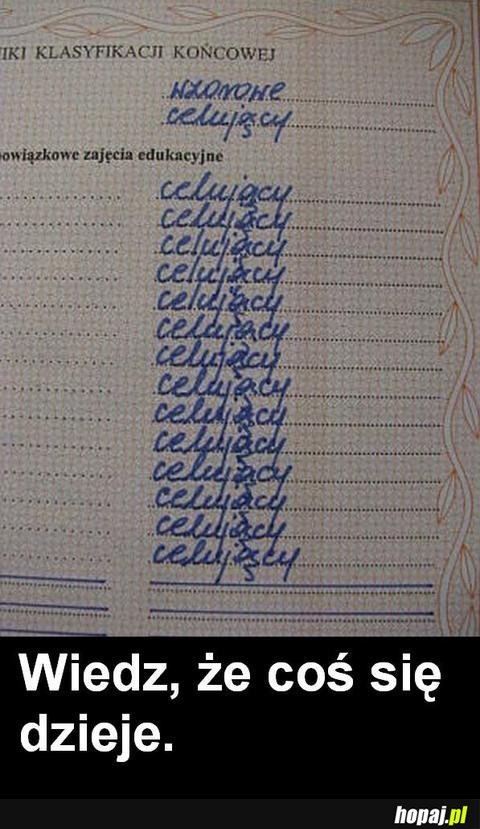 IKI KLASYFIKACJI KOŃCOWEJ
wzorowe
celujący
owiązkowe zajęcia edukacyjne
celujący
celujący
celujący
celujący
celujący
celujący
celujący
celujący
celujący
celujący
celujący
celujący
celujący
celujący
Wiedz, że coś się
dzieje.
hopaj.pl